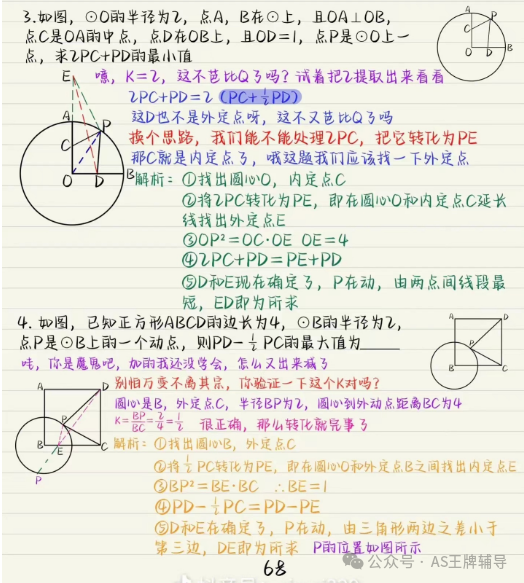 3.如图,⊙O的半径为2,点A,B在⊙上,且OA⊥OB,
点C是OA的中点,点D在OB上,且OD=1,点P是⊙O上一
点,求2PC+PD的最小值
A
C
P
O
D
B
嘶,K=2,这不芭比Q了吗?试着把2提取出来看看
2PC+PD=2(PC+½PD)
这D也不是外定点呀,这不又芭比Q了吗
换个思路,我们能不能处理2PC,把它转化为PE
那C就是内定点了,哦这题我们应该找一下外定点
E
A
P
C
O
D
B
解析:①找出圆心O,内定点C
②将2PC转化为PE,即在圆心O和内定点C延长
线找出外定点E
③OP²=OC·OE OE=4
④2PC+PD=PE+PD
⑤D和E现在确定了,P在动,由两点间线段最
短,ED即为所求
4.如图,已知正方形ABCD的边长为4,⊙B的半径为2,
点P是⊙B上的一个动点,则PD-½PC的最大值为____
A
D
P
B
C
哇,你是魔鬼吧,加的我还没学会,怎么又出来减了
别怕万变不离其宗,你验证一下这个K对吗?
圆心是B,外定点C,半径BP为2,圆心到外动点距离BC为4
K=BP/BC=2/4=½ 很正确,那么转化就完事了
A
D
P
B
E
C
P
解析:①找出圆心B,外定点C
②将½PC转化为PE,即在圆心O和外定点B之间找出内定点E
③BP²=BE·BC ∴BE=1
④PD-½PC=PD-PE
⑤D和E在确定了,P在动,由三角形两边之差小于
第三边,DE即为所求 P的位置如图所示
68
公众号·AS王牌辅导